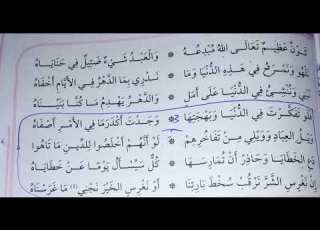 قرن عظيم تعالى الله مبدعه * والعبد شيء ضئيل في حناياه
نلهو ونمرح في هذه الدنيا وما * ندري بما الدهر في الأيام أخفاه
نبني وننشئ في الدنيا على أمل * والدهر يهدم ما كنا بنيناه
لو تفكرت في الدنيا وبهجتها * وجدت أكدرما في الأمر أصفاه
ويل العباد وويلي من تفاخرهم * لو أنهم أخلصوا للدين ما تاهوا
دع الخطايا وحاذر أن تمارسها * كل سيسأل يوما عن خطاياه
إن نغرس الشر نرقب سخط بارئنا * أو نغرس الخير نجني (1) ما غرسناه